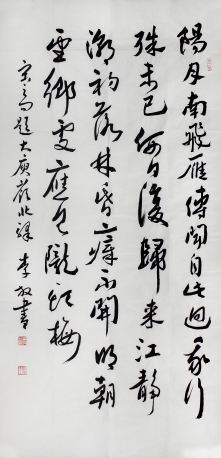 陽月南飛雁傳聞自此迴我行
殊未已何日復歸来江静
潮初落林昏瘴不開明朝
望鄉處應見隴頭梅
宋之問題大庾嶺北驛 李敬書